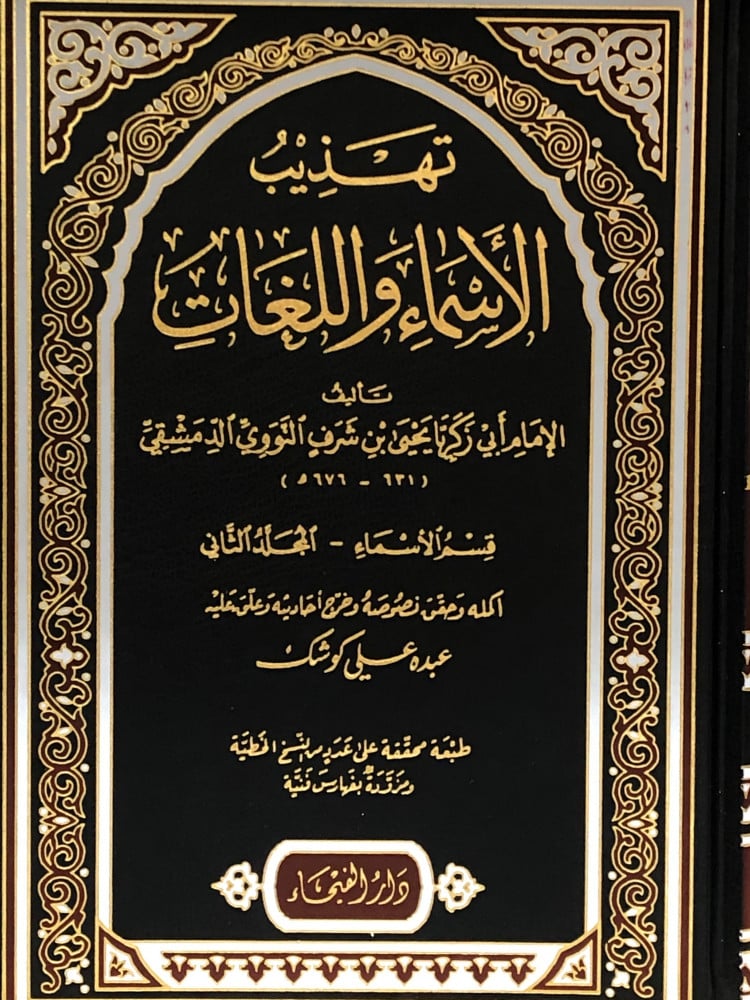 تهذيب
الأسماء واللغات
تأليف
الإمام أبي زكريا يحيى بن شرف النووي الدمشقي
(٦٣١ - ٦٧٦ ه)
قسم الأسماء - المجلد الثاني
أكمله وحقق نصوصه وخرج أحاديثه وعلق عليه
عبده علي كوشك
طبعة محققة على عدد من النسخ الخطية
ومزودة بفهارس فنية
دار الفيحاء